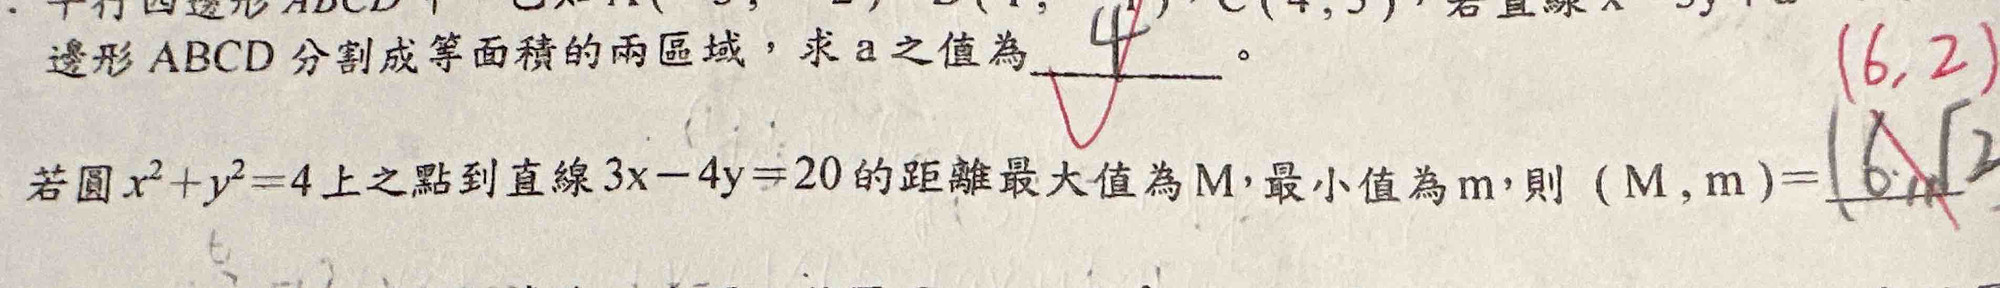 平行四邊形 ABCD 中
邊形 ABCD 分割成等面積的兩區域，求 a 之值為 4 。
(6, 2)
若圓 x²+y²=4 上之點到直線 3x－4y＝20 的距離最大值為 M，最小值為 m，則 ( M , m )=